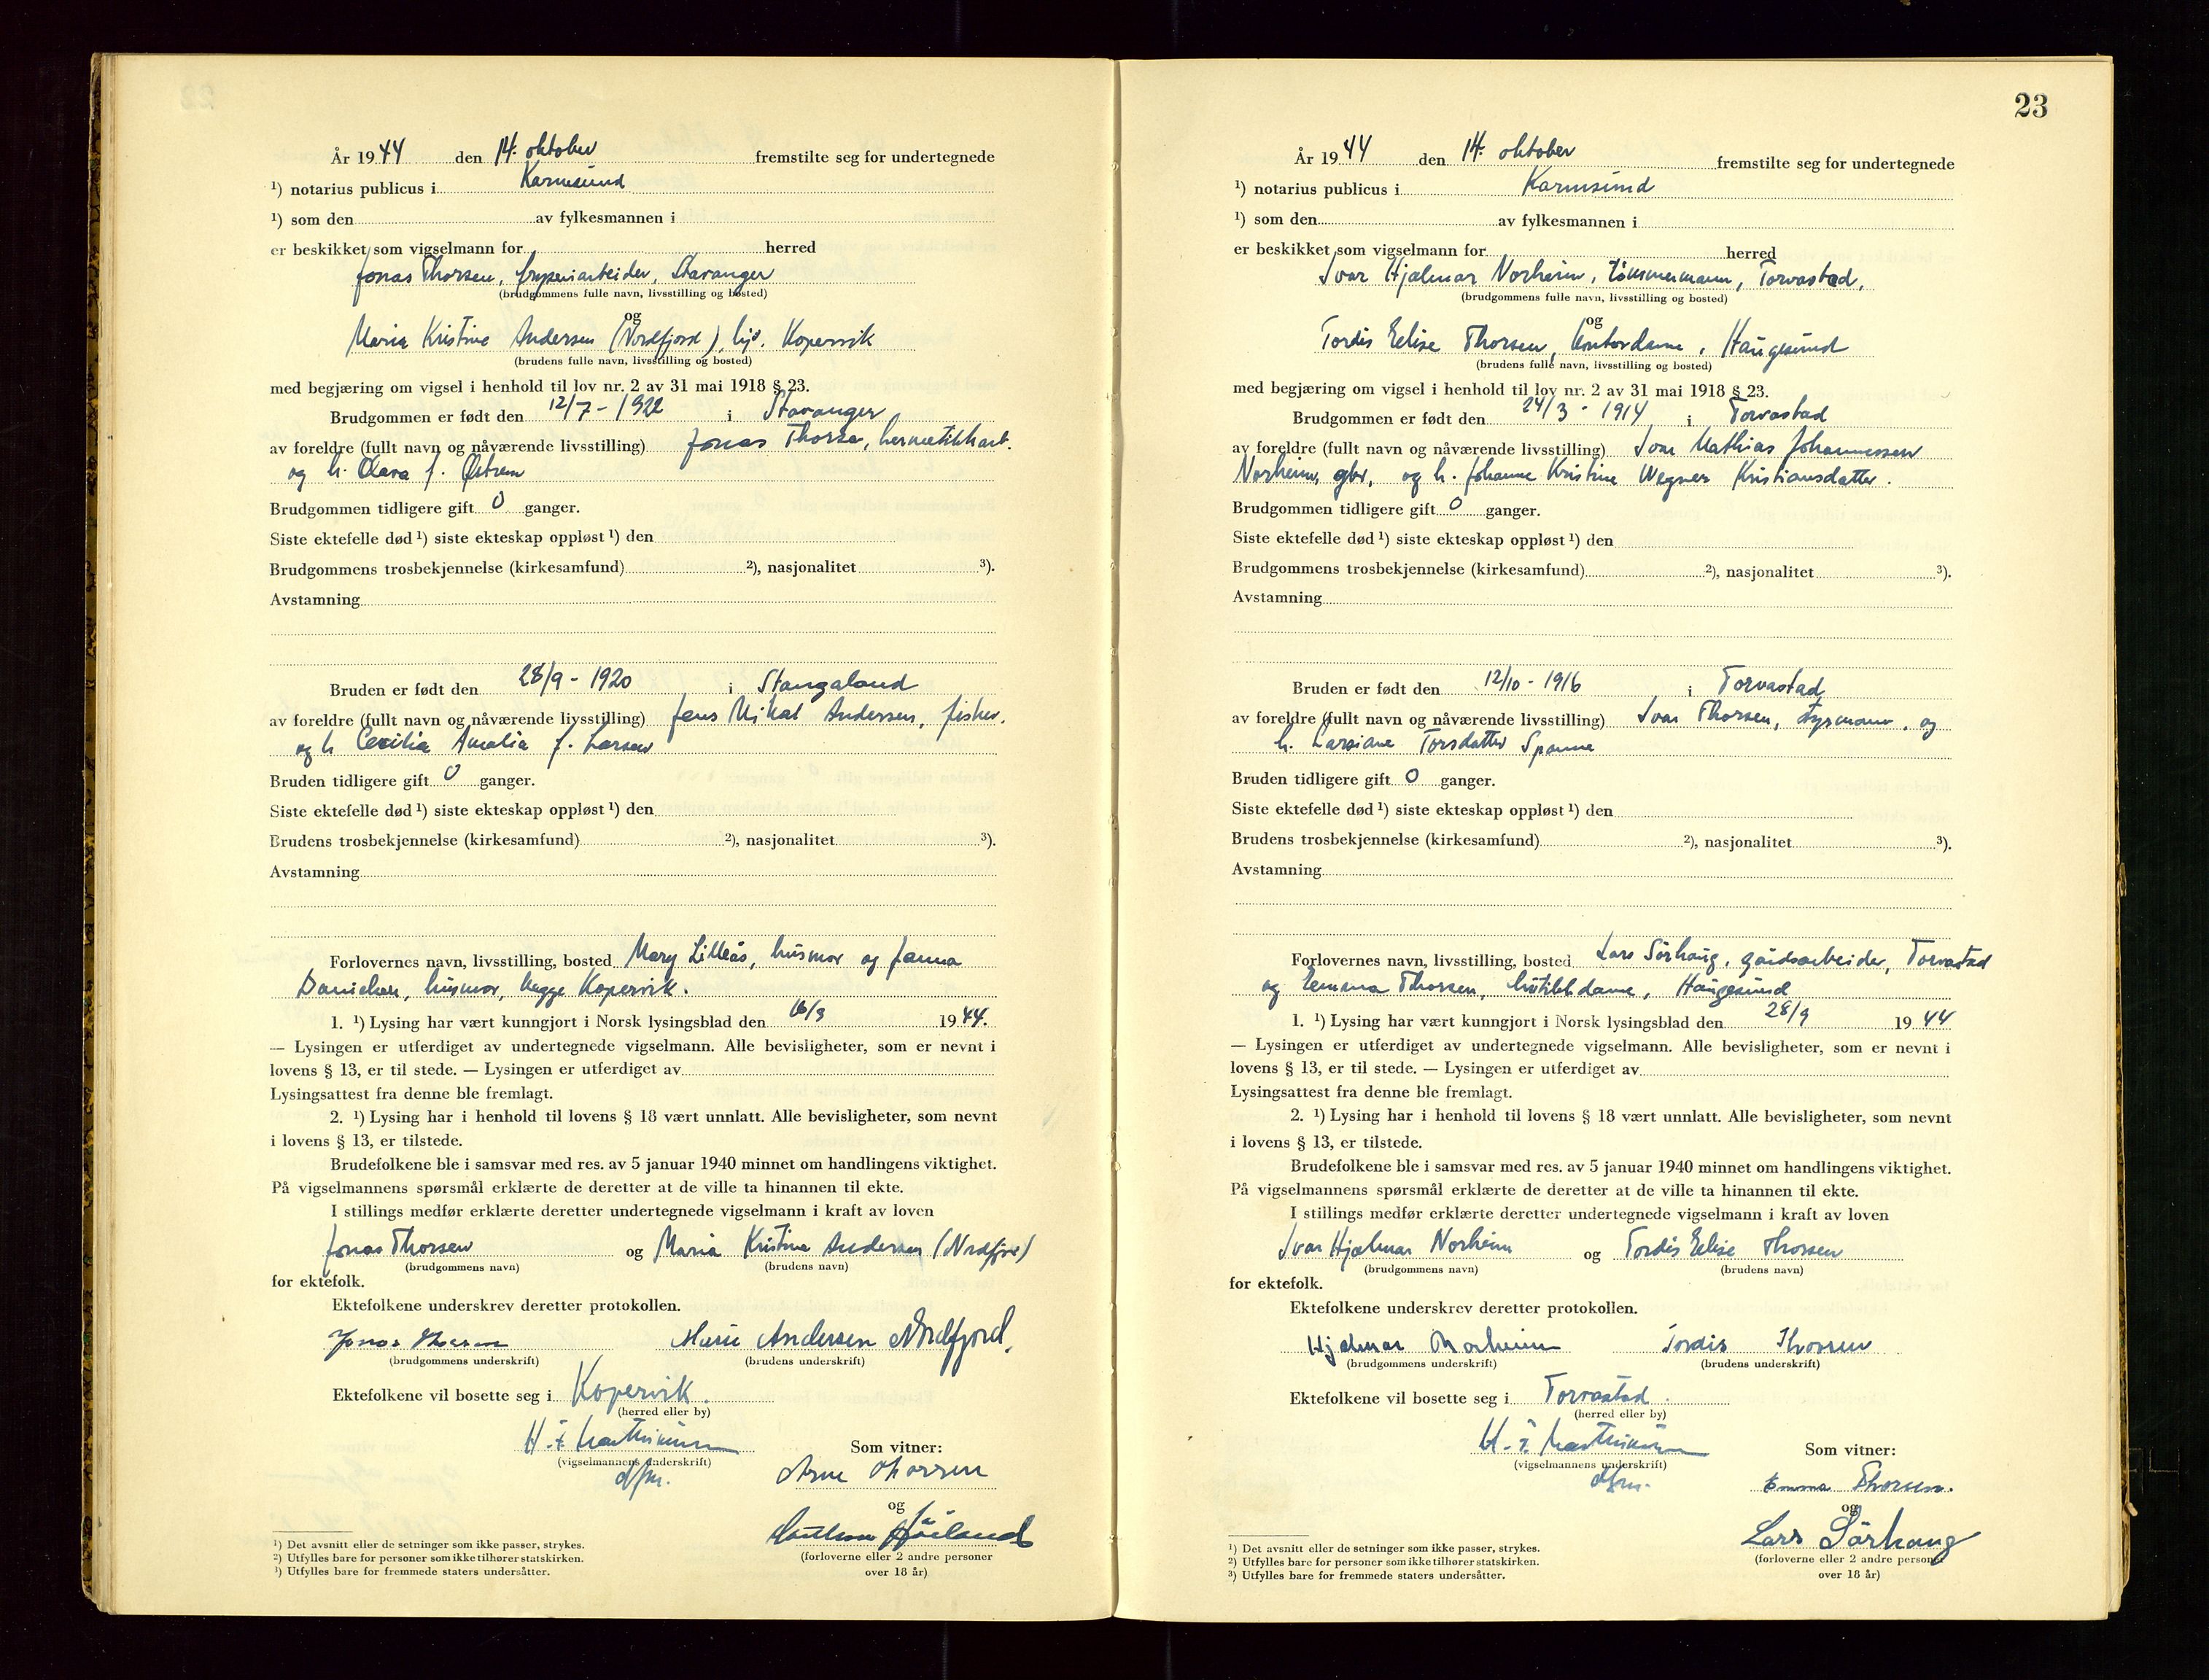 År 1944 den 14. oktober fremstilte seg for undertegnede
¹) notarius publicus i Karmsund
¹) som den av fylkesmannen i
er beskikket som vigselmann for herred
Jonas Thorsen, bryggeriarbeider, Stavanger
(brudgommens fulle navn, livsstilling og bosted)
og
Maria Kristine Andersen (Nordfjord), hjv. Kopervik
(brudens fulle navn, livsstilling og bosted)
med begjæring om vigsel i henhold til lov nr. 2 av 31 mai 1918 § 23.
Brudgommen er født den 12/7 - 1922 i Stavanger
av foreldre (fullt navn og nåværende livsstilling) Jonas Thorsen, hermetikkarb.
og h. Klara f. Østrem
Brudgommen tidligere gift 0 ganger.
Siste ektefelle død ¹) siste ekteskap oppløst ¹) den
Brudgommens trosbekjennelse (kirkesamfund) ²), nasjonalitet ³).
Avstamning
Bruden er født den 28/9 - 1920 i Stangaland
av foreldre (fullt navn og nåværende livsstilling) Jens Mikal Andersen, fisker,
og h. Cecilia Amalia f. Larsen
Bruden tidligere gift 0 ganger.
Siste ektefelle død ¹) siste ekteskap oppløst ¹) den
Brudens trosbekjennelse (kirkesamfund) ²), nasjonalitet ³).
Avstamning
Forlovernes navn, livsstilling, bosted Mary Lilleås, husmor og Janna
Danielsen, husmor, begge Kopervik.
1. ¹) Lysing har vært kunngjort i Norsk lysingsblad den 1944.
— Lysingen er utferdiget av undertegnede vigselmann. Alle bevisligheter, som er nevnt i
lovens § 13, er til stede. — Lysingen er utferdiget av
Lysingsattest fra denne ble fremlagt.
2. ¹) Lysing har i henhold til lovens § 18 vært unnlatt. Alle bevisligheter, som nevnt
i lovens § 13, er tilstede.
Brudefolkene ble i samsvar med res. av 5 januar 1940 minnet om handlingens viktighet.
På vigselmannens spørsmål erklærte de deretter at de ville ta hinannen til ekte.
I stillings medfør erklærte deretter undertegnede vigselmann i kraft av loven
Jonas Thorsen og Maria Kristine Andersen (Nordfjord)
(brudgommens navn) (brudens navn)
for ektefolk.
Ektefolkene underskrev deretter protokollen.
Jonas Thorsen Marie Andersen Nordfjord.
(brudgommens underskrift) (brudens underskrift)
Ektefolkene vil bosette seg i Kopervik.
(herred eller by)
(vigselmannens underskrift) Som vitner:
dfm. Arne Thorsen
og
(forloverne eller 2 andre personer
over 18 år)
¹) Det avsnitt eller de setninger som ikke passer, strykes.
²) Utfylles bare for personer som ikke tilhører statskirken.
³) Utfylles bare for fremmede staters undersåtter.
23
År 1944 den 14. oktober fremstilte seg for undertegnede
¹) notarius publicus i Karmsund
¹) som den av fylkesmannen i
er beskikket som vigselmann for herred
Ivar Hjalmar Norheim, tömmermann, Torvastad,
(brudgommens fulle navn, livsstilling og bosted)
og
Tordis Elise Thorsen, kontordame, Haugesund
(brudens fulle navn, livsstilling og bosted)
med begjæring om vigsel i henhold til lov nr. 2 av 31 mai 1918 § 23.
Brudgommen er født den 24/3 - 1914 i Torvastad
av foreldre (fullt navn og nåværende livsstilling) Ivar Mathias Johannessen
Norheim, gbr, og h. Johanne Kristine Wegner Kristiansdatter.
Brudgommen tidligere gift 0 ganger.
Siste ektefelle død ¹) siste ekteskap oppløst ¹) den
Brudgommens trosbekjennelse (kirkesamfund) ²), nasjonalitet ³).
Avstamning
Bruden er født den 12/10 - 1916 i Torvastad
av foreldre (fullt navn og nåværende livsstilling) Ivar Thorsen, styrmann, og
h. Larsiane Torsdatter Spanne
Bruden tidligere gift 0 ganger.
Siste ektefelle død ¹) siste ekteskap oppløst ¹) den
Brudens trosbekjennelse (kirkesamfund) ²), nasjonalitet ³).
Avstamning
Forlovernes navn, livsstilling, bosted Lars Sörhaug, gårdsarbeider, Torvastad
og Emma Thorsen, butikkdame, Haugesund
1. ¹) Lysing har vært kunngjort i Norsk lysingsblad den 28/9 1944
— Lysingen er utferdiget av undertegnede vigselmann. Alle bevisligheter, som er nevnt i
lovens § 13, er til stede. — Lysingen er utferdiget av
Lysingsattest fra denne ble fremlagt.
2. ¹) Lysing har i henhold til lovens § 18 vært unnlatt. Alle bevisligheter, som nevnt
i lovens § 13, er tilstede.
Brudefolkene ble i samsvar med res. av 5 januar 1940 minnet om handlingens viktighet.
På vigselmannens spørsmål erklærte de deretter at de ville ta hinannen til ekte.
I stillings medfør erklærte deretter undertegnede vigselmann i kraft av loven
Ivar Hjalmar Norheim og Tordis Elise Thorsen
(brudgommens navn) (brudens navn)
for ektefolk.
Ektefolkene underskrev deretter protokollen.
Hjalmar Norheim Tordis Thorsen
(brudgommens underskrift) (brudens underskrift)
Ektefolkene vil bosette seg i Torvastad.
(herred eller by)
(vigselmannens underskrift) Som vitner:
dfm. Emma Thorsen.
og
Lars Sörhaug
(forloverne eller 2 andre personer
over 18 år)
¹) Det avsnitt eller de setninger som ikke passer, strykes.
²) Utfylles bare for personer som ikke tilhører statskirken.
³) Utfylles bare for fremmede staters undersåtter.